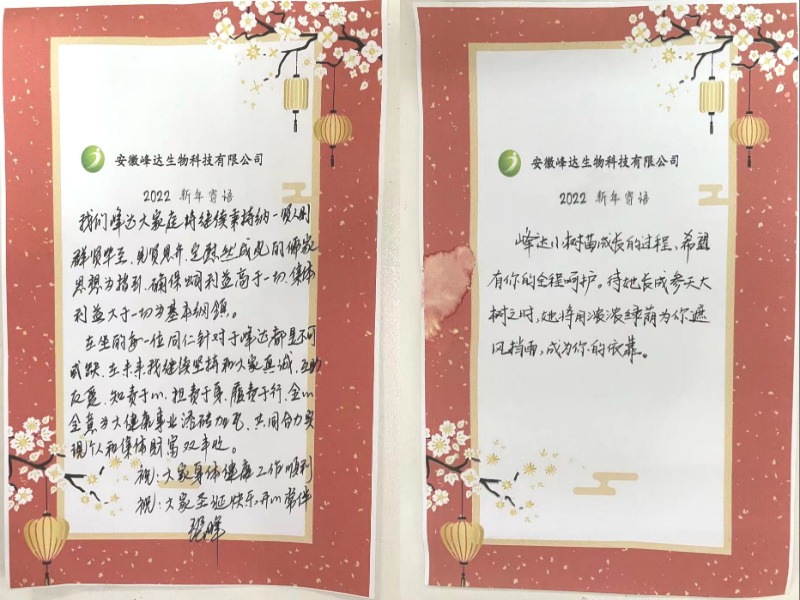 安徽峰达生物科技有限公司
2022 新年寄语
我们峰达大家庭将继续秉持纳一贤人则
群贤毕至、见贤思齐、定蔚然成风的儒家
思想为指引、确保 利益高于一切、集体
利益大于一切为基本纲领。
在坐的每一位同仁针对于峰达都是不可
或缺、在未来我继续坚持和大家真诚、互助
友爱、知责于心、担责于身、履责于行、全心
全意为大健康事业添砖加瓦、共同合力实
现个人和集体财富双丰收。
祝：大家身体健康工作顺利
祝：大家圣诞快乐、开心常伴
安徽峰达生物科技有限公司
2022 新年寄语
峰达小树苗成长的过程、希望
有你的全程呵护。待她长成参天大
树之时，她将用浓浓绿荫为你遮
风挡雨，成为你的依靠。